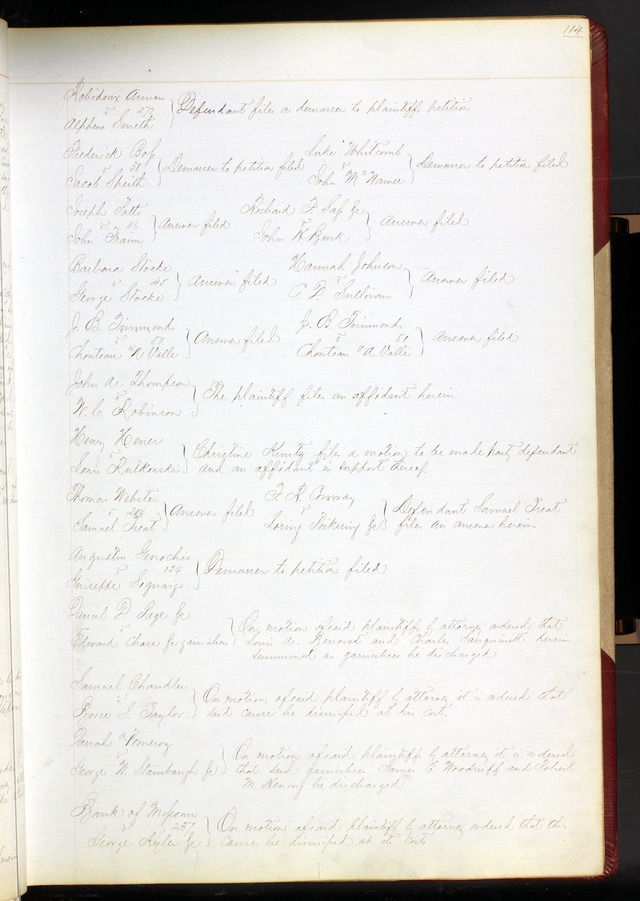 114
Robidoux Arman
vs 27
Alpheus Smith
Defendant files a demurrer to plaintiffs petition
Frederick Bof
vs 31
Jacob
Demurrer to petition filed
Luke Whitcomb
vs
John McNamer
Demurrer to petition filed
Joseph
vs 46
John
Answer filed
Richard F. Sap Jr
vs
John H Benk
Answer filed
Barbara Stocke
vs 45
George Stocke
Answer filed
Hannah Johnson
vs
C. D. Sullivan
Answer filed
J. B. Timmonds
vs 50
Chouteau & Valle
Answer filed
J. B. Timmonds
vs 51
Chouteau & Valle
Answer filed
John A. Thompson
vs
W. C. Robinson
The plaintiff files an affidavit herein
Henry Hener
vs
Louis Rutkowski
Christine files a motion to be made party defendant
and an affidavit in support thereof
Thomas Webster
vs
Samuel Treat
Answer filed
F. R. Conway
vs
Loring Pickering Jr
Defendant Samuel Treat
files an answer herein
Augustin
vs 134
Guiseppe
Demurrer to petition filed
Daniel D. Page Jr
vs
Edward Chase Jr garnishees
On motion of said plaintiffs by attorney ordered that
Louis A. Benoist and Charles Sanguinett herein
summoned as garnishees be discharged
Samuel Chandler
vs
S. Taylor
On motion of said plaintiff by attorney it is ordered that
said cause be dismissed at his cost.
& Pomeroy
vs
George W. Stambaugh Jr
On motion of said plaintiffs by attorney it is ordered
that said garnishees James E Woodruff and Robert
M. be discharged
Bank of Missouri
vs 257
George Kyler Jr
On motion of said plaintiff by attorney ordered that this
cause be dismissed at its costs